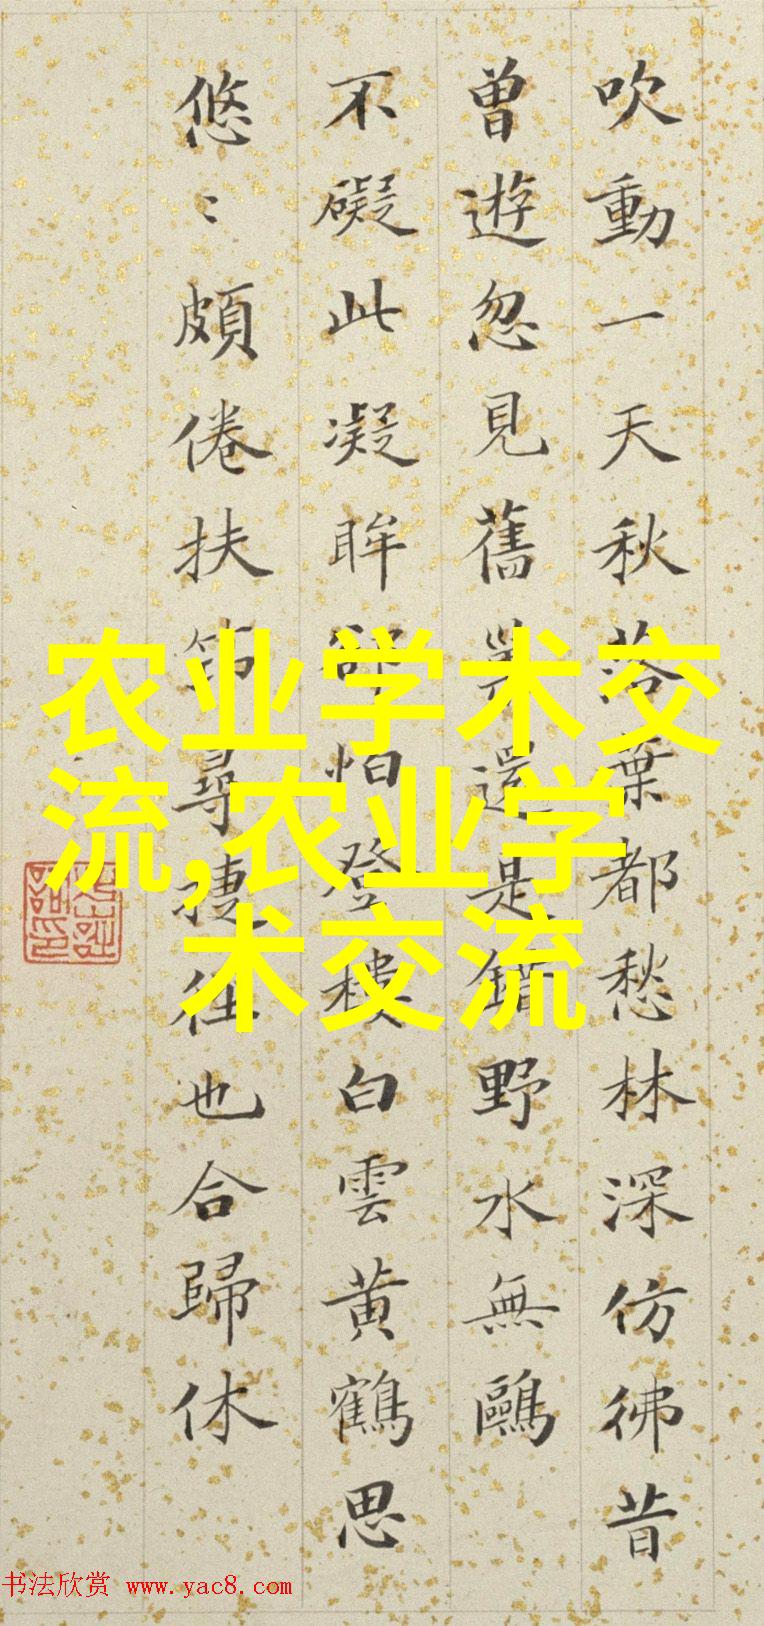 吹動一天秋落葉都愁林深仿彿昔
曾遊忽見舊還是錯野水無鷗
不礙此凝眸卻怕登樓白雲黃鶴思
悠〻頗倦扶尋捷徑也合歸休
农业学术交
流,农业学
术交流
书法欣赏 www.yac8.com